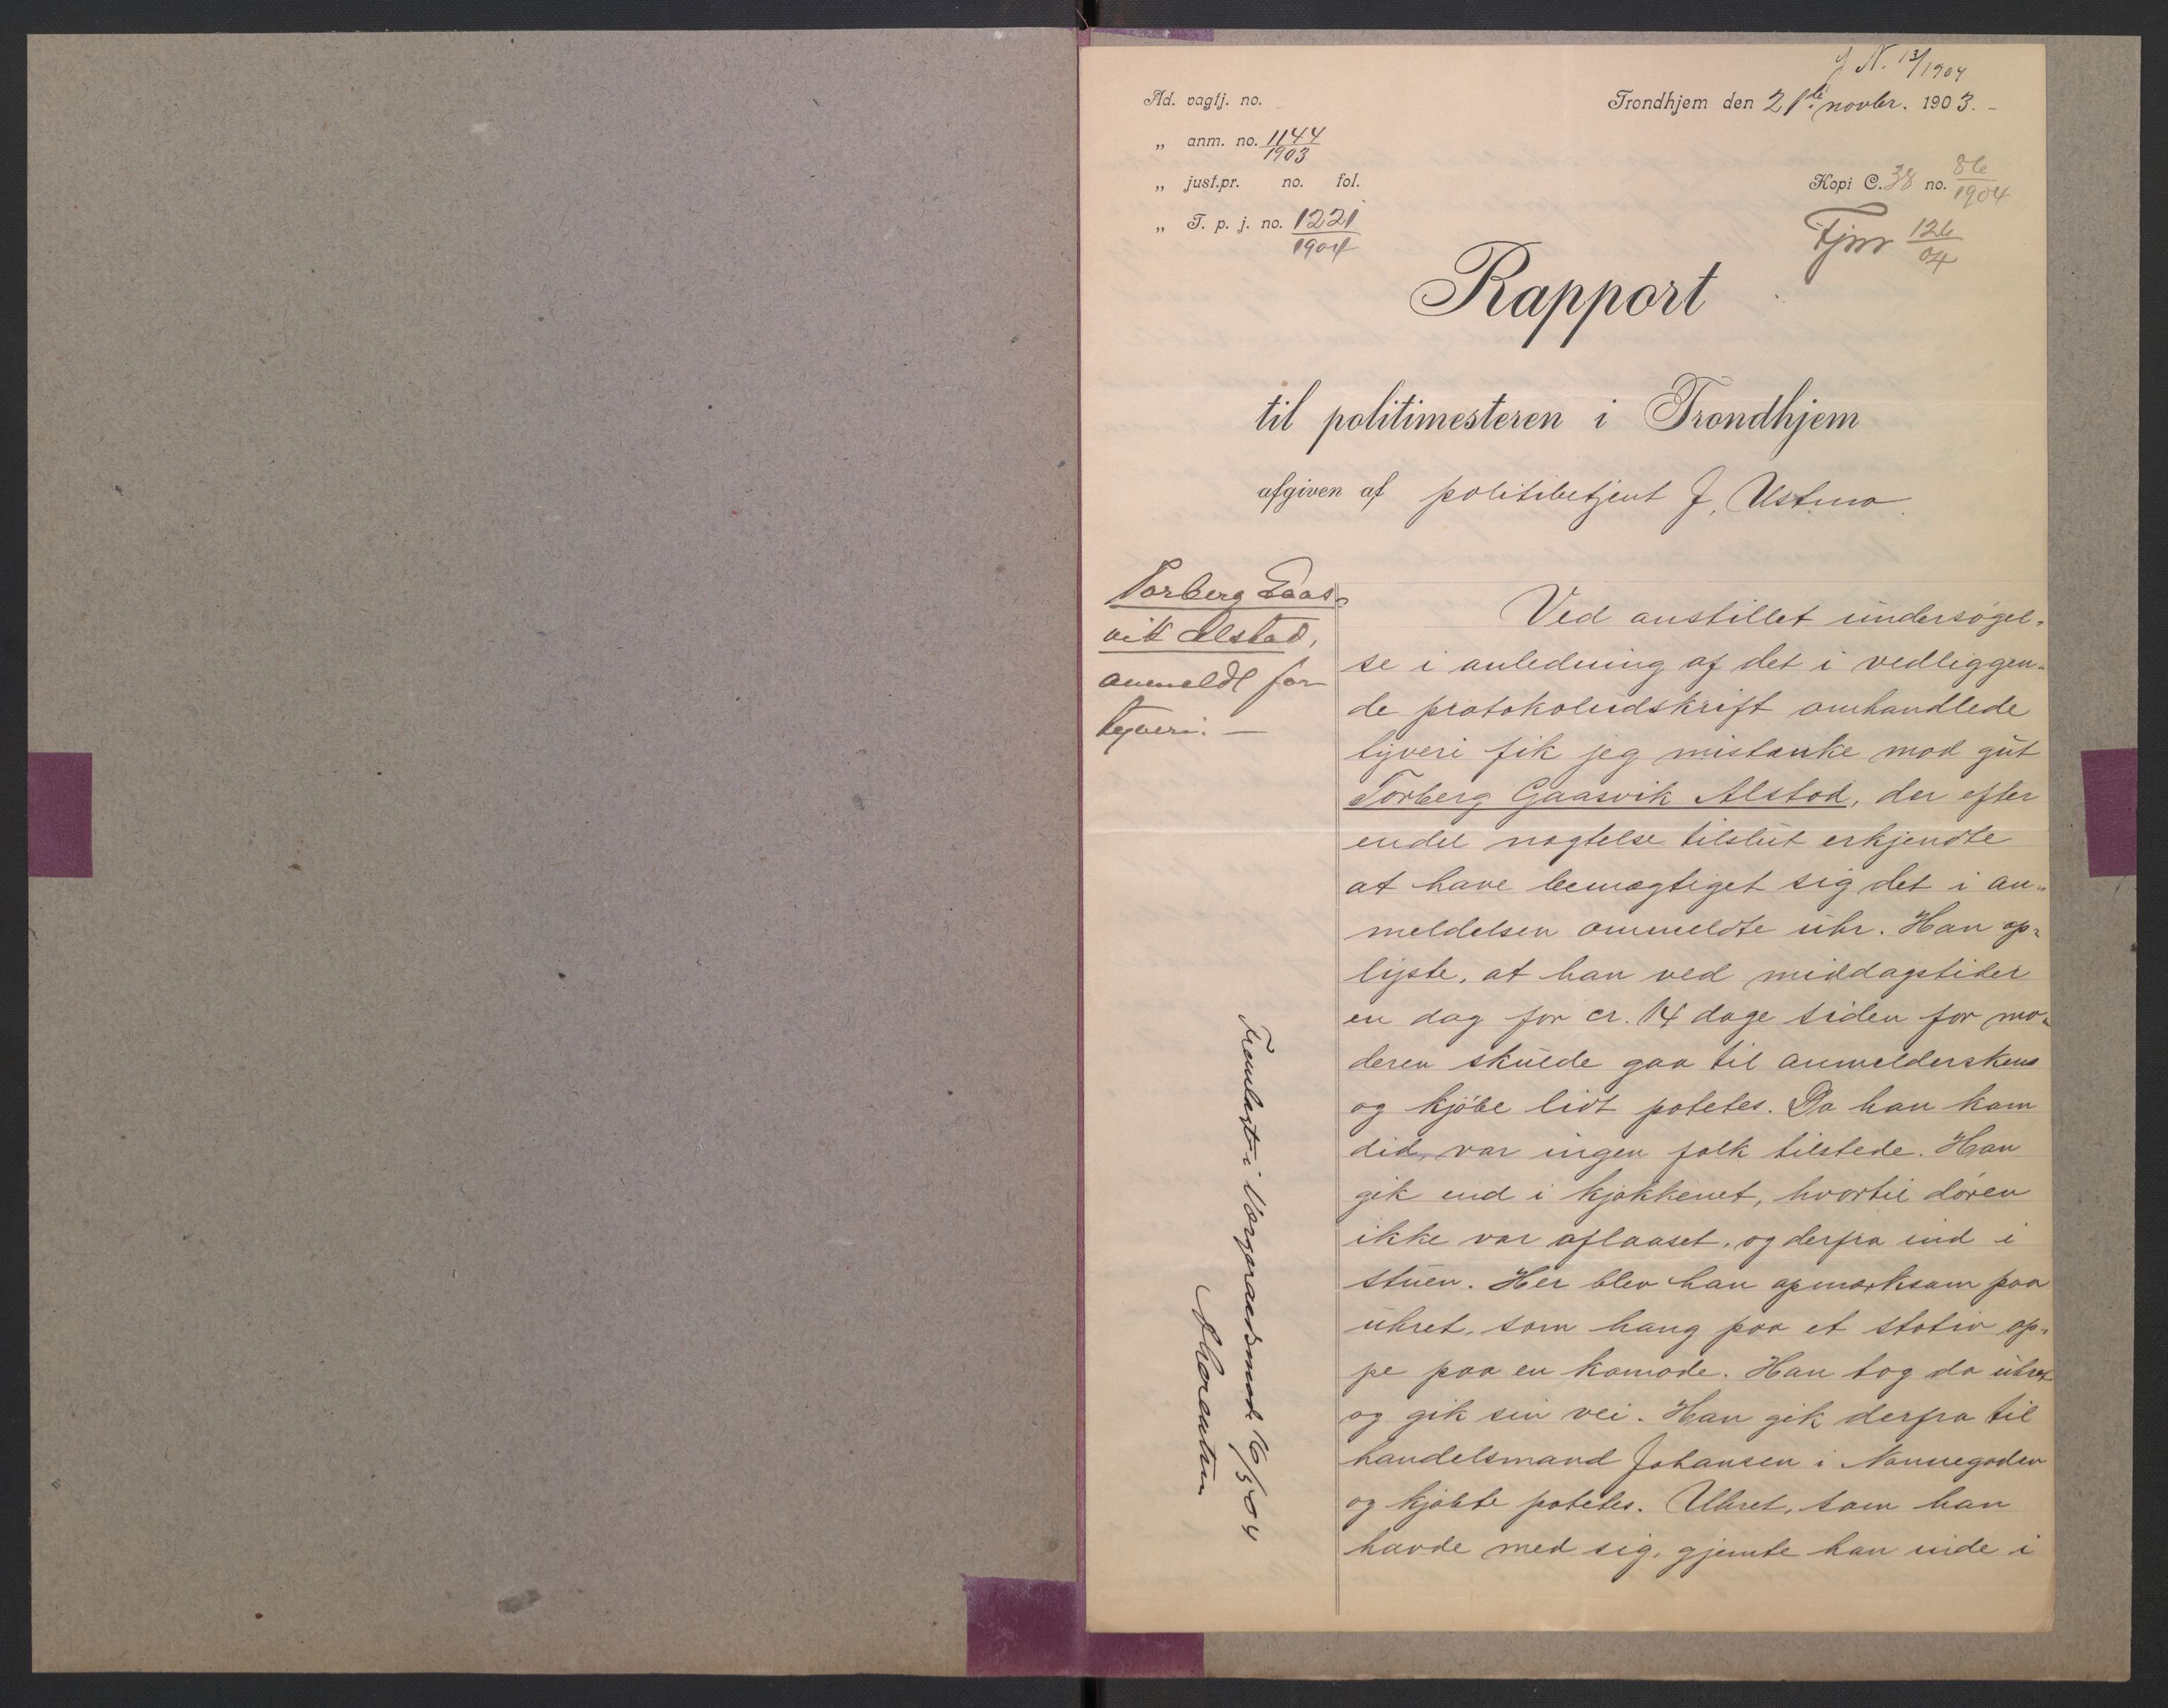 J N. 13/1904
Ad. vagtj. no.
Trondhjem den 21de novbr. 1903.
„ anm. no. 1144/1903
„ just.pr. no. fol.
Kopi C. 38 no. 86/1904
„ T. p. j. no. 1221/1904
126/04
Rapport
til politimesteren i Trondhjem
afgiven af politibetjent J. Ustmo
Torberg Gaas-
vik Alstad,
anmeldt for
tyveri. —
Ved anstillet undersøgel-
se i anledning af det i vedliggen-
de protokoludskrift omhandlede
tyveri fik jeg mistanke mod gut
Torberg Gaasvik Alstad, der efter
endel nægtelse tilslut erkjendte
at have bemægtiget sig det i an-
meldelsen ommeldte uhr. Han op-
lyste, at han ved middagstider
en dag for cr. 14 dage siden for mo-
deren skulde gaa til anmelderskens
og kjøbe lidt potetes. Da han kom
did, var ingen folk tilstede. Han
gik ind i kjøkkenet, hvortil døren
ikke var aflaaset, og derfra ind i
stuen. Her blev han opmærksom paa
uhret, som hang paa et stativ op-
pe paa en komode. Han tog da uhret
og gik sin vei. Han gik derfra til
handelsmand Johansen i Nonnegaden
og kjøbte potetes. Uhret, som han
havde med sig, gjemte han inde i
Fremlagt i Værgeraadsmøde 16/3 04